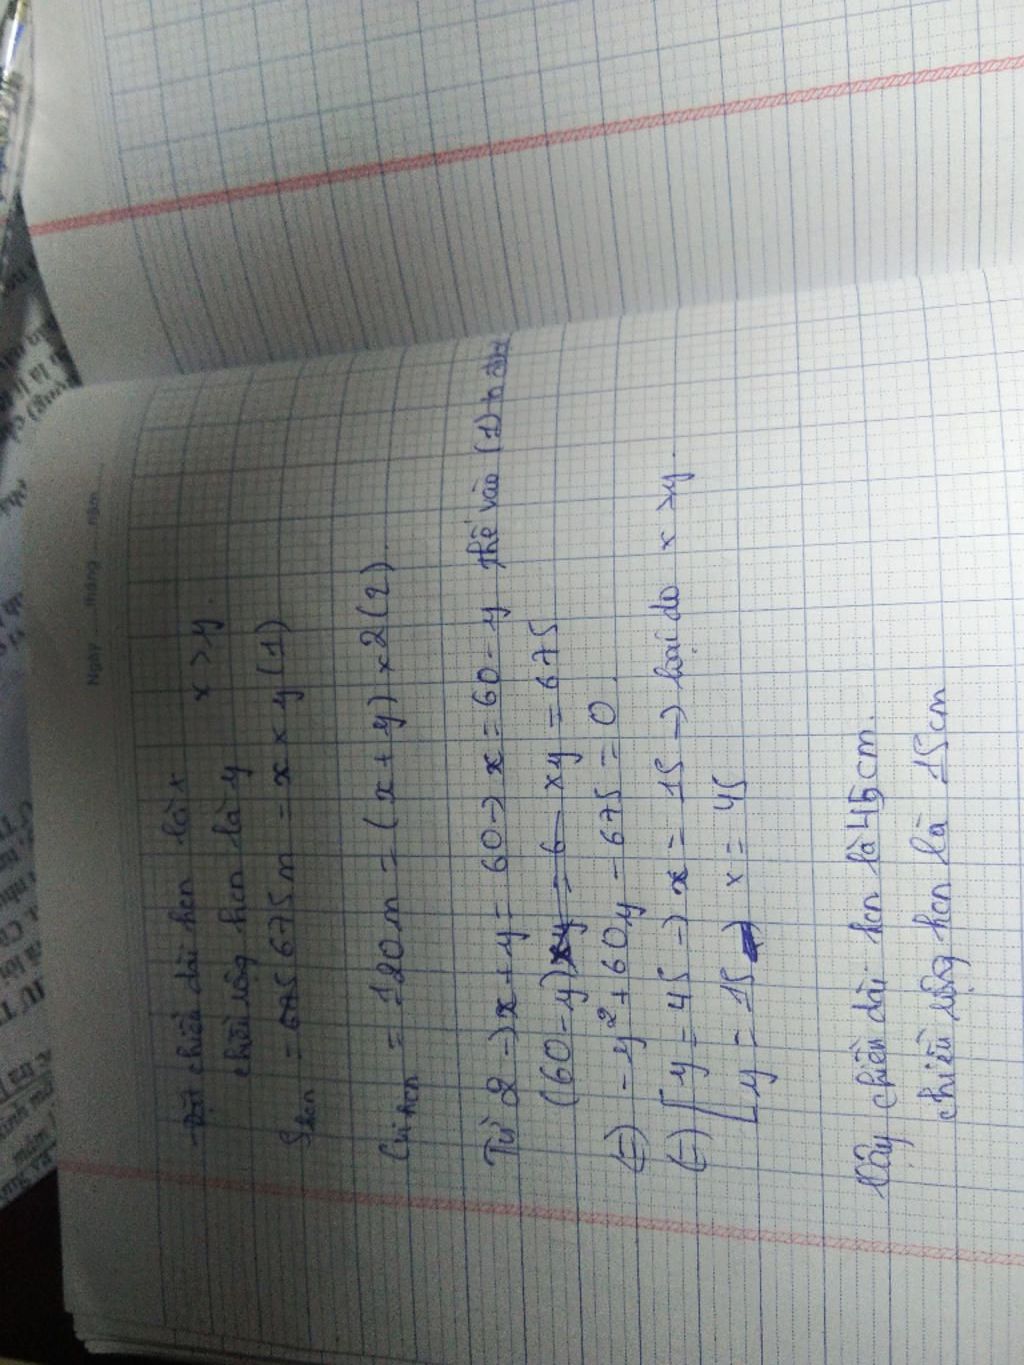 Ngày tháng năm
Đặt chiều dài hcn là x
x > y.
chiều rộng hcn là y
Shcn = 675 675 m = x × y (1)
Cvihcn = 120 m = (x + y) × 2 (2).
Từ 2 → x + y = 60 → x = 60 - y thế vào (1)
(60 - y) xy = 6 - xy = 675
(=) - y² + 60y - 675 = 0.
(=) [ y = 45 → x = 15 → loại do x > y.
[ y = 15 → x = 45
Vậy chiều dài hcn là 45cm.
chiều rộng hcn là 15cm